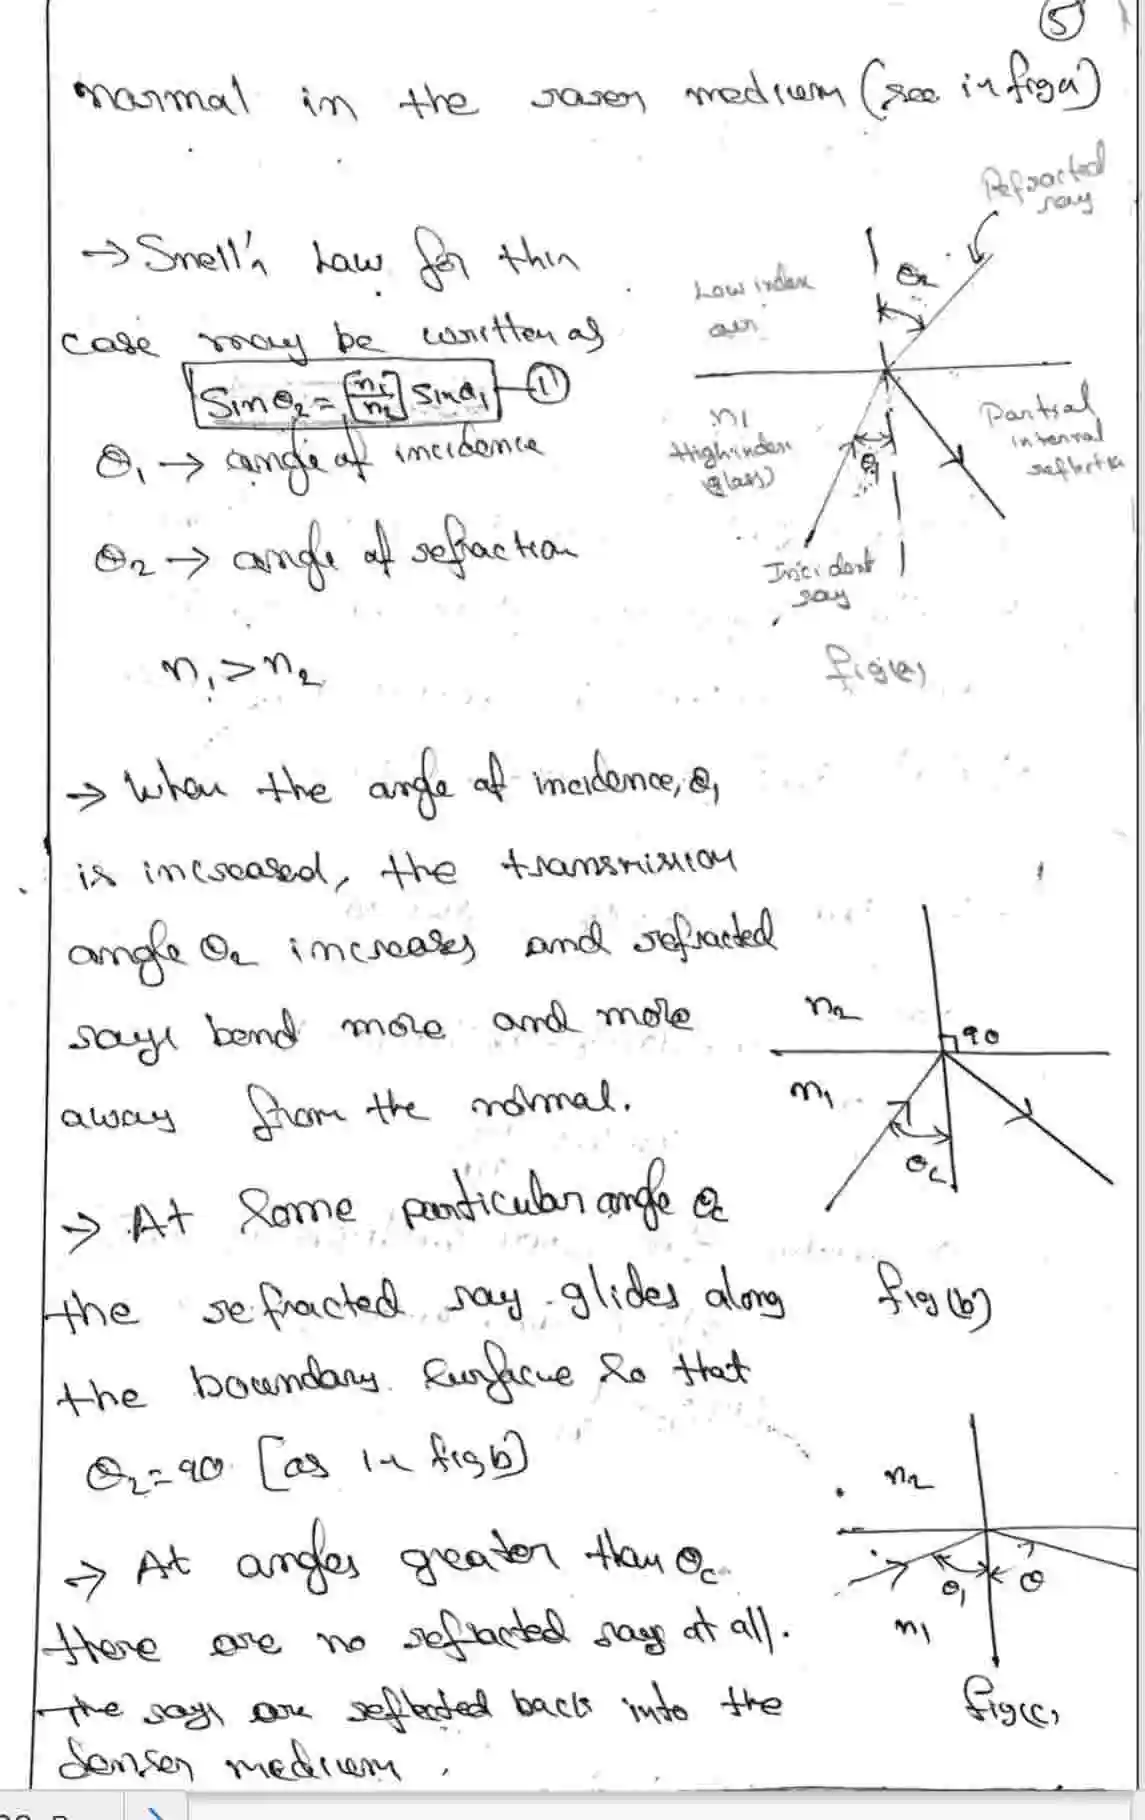 5
normal in the rarer medium (see in fig a)
→ Snell's Law for this
case may be written as
Sin θ2 = [n1/n2] Sin θ1 — (1)
θ1 → angle of incidence
θ2 → angle of refraction
n1 > n2
Refracted
ray
Low index
air
θ2
n1
High index
(glass)
Partial
internal
reflectio
θ1
Incident
ray
fig(a)
→ When the angle of incidence, θ1
is increased, the transmission
angle θ2 increases and refracted
rays bend more and more
away from the normal.
→ At Some particular angle θc
the refracted ray glides along
the boundary Surface So that
θ2 = 90 [as in fig b]
n2
90
n1
θc
fig(b)
→ At angles greater than θc
there are no refracted rays at all.
The rays are reflected back into the
denser medium.
n2
θ1
θ
n1
fig(c)